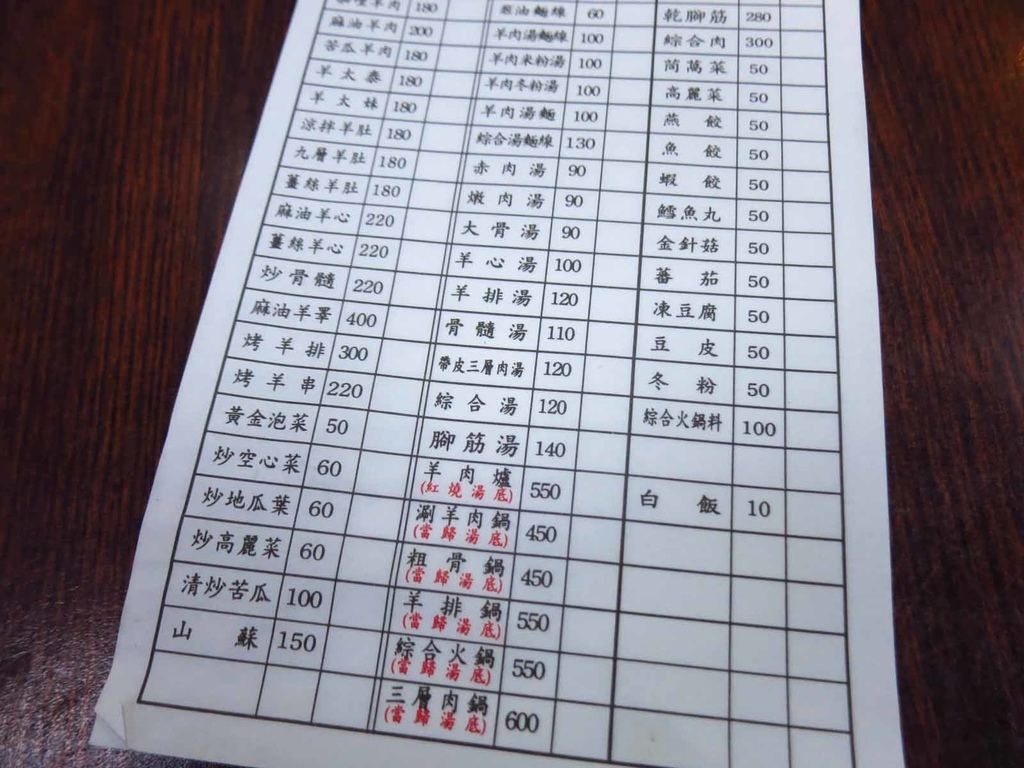 羊肉 180
麻油羊肉 200
苦瓜羊肉 180
羊太泰 180
羊太妹 180
涼拌羊肚 180
九層羊肚 180
薑絲羊肚 180
麻油羊心 220
薑絲羊心 220
炒骨髓 220
麻油羊睪 400
烤羊排 300
烤羊串 220
黃金泡菜 50
炒空心菜 60
炒地瓜葉 60
炒高麗菜 60
清炒苦瓜 100
山蘇 150
蔥油麵線 60
羊肉湯麵線 100
羊肉米粉湯 100
羊肉冬粉湯 100
羊肉湯麵 100
綜合湯麵線 130
赤肉湯 90
燉肉湯 90
大骨湯 90
羊心湯 100
羊排湯 120
骨髓湯 110
帶皮三層肉湯 120
綜合湯 120
腳筋湯 140
羊肉爐 550
(紅燒湯底)
涮羊肉鍋 450
(當歸湯底)
粗骨鍋 450
(當歸湯底)
羊排鍋 550
(當歸湯底)
綜合火鍋 550
(當歸湯底)
三層肉鍋 600
(當歸湯底)
乾腳筋 280
綜合肉 300
茼萵菜 50
高麗菜 50
燕餃 50
魚餃 50
蝦餃 50
鱈魚丸 50
金針菇 50
蕃茄 50
凍豆腐 50
豆皮 50
冬粉 50
綜合火鍋料 100
白飯 10